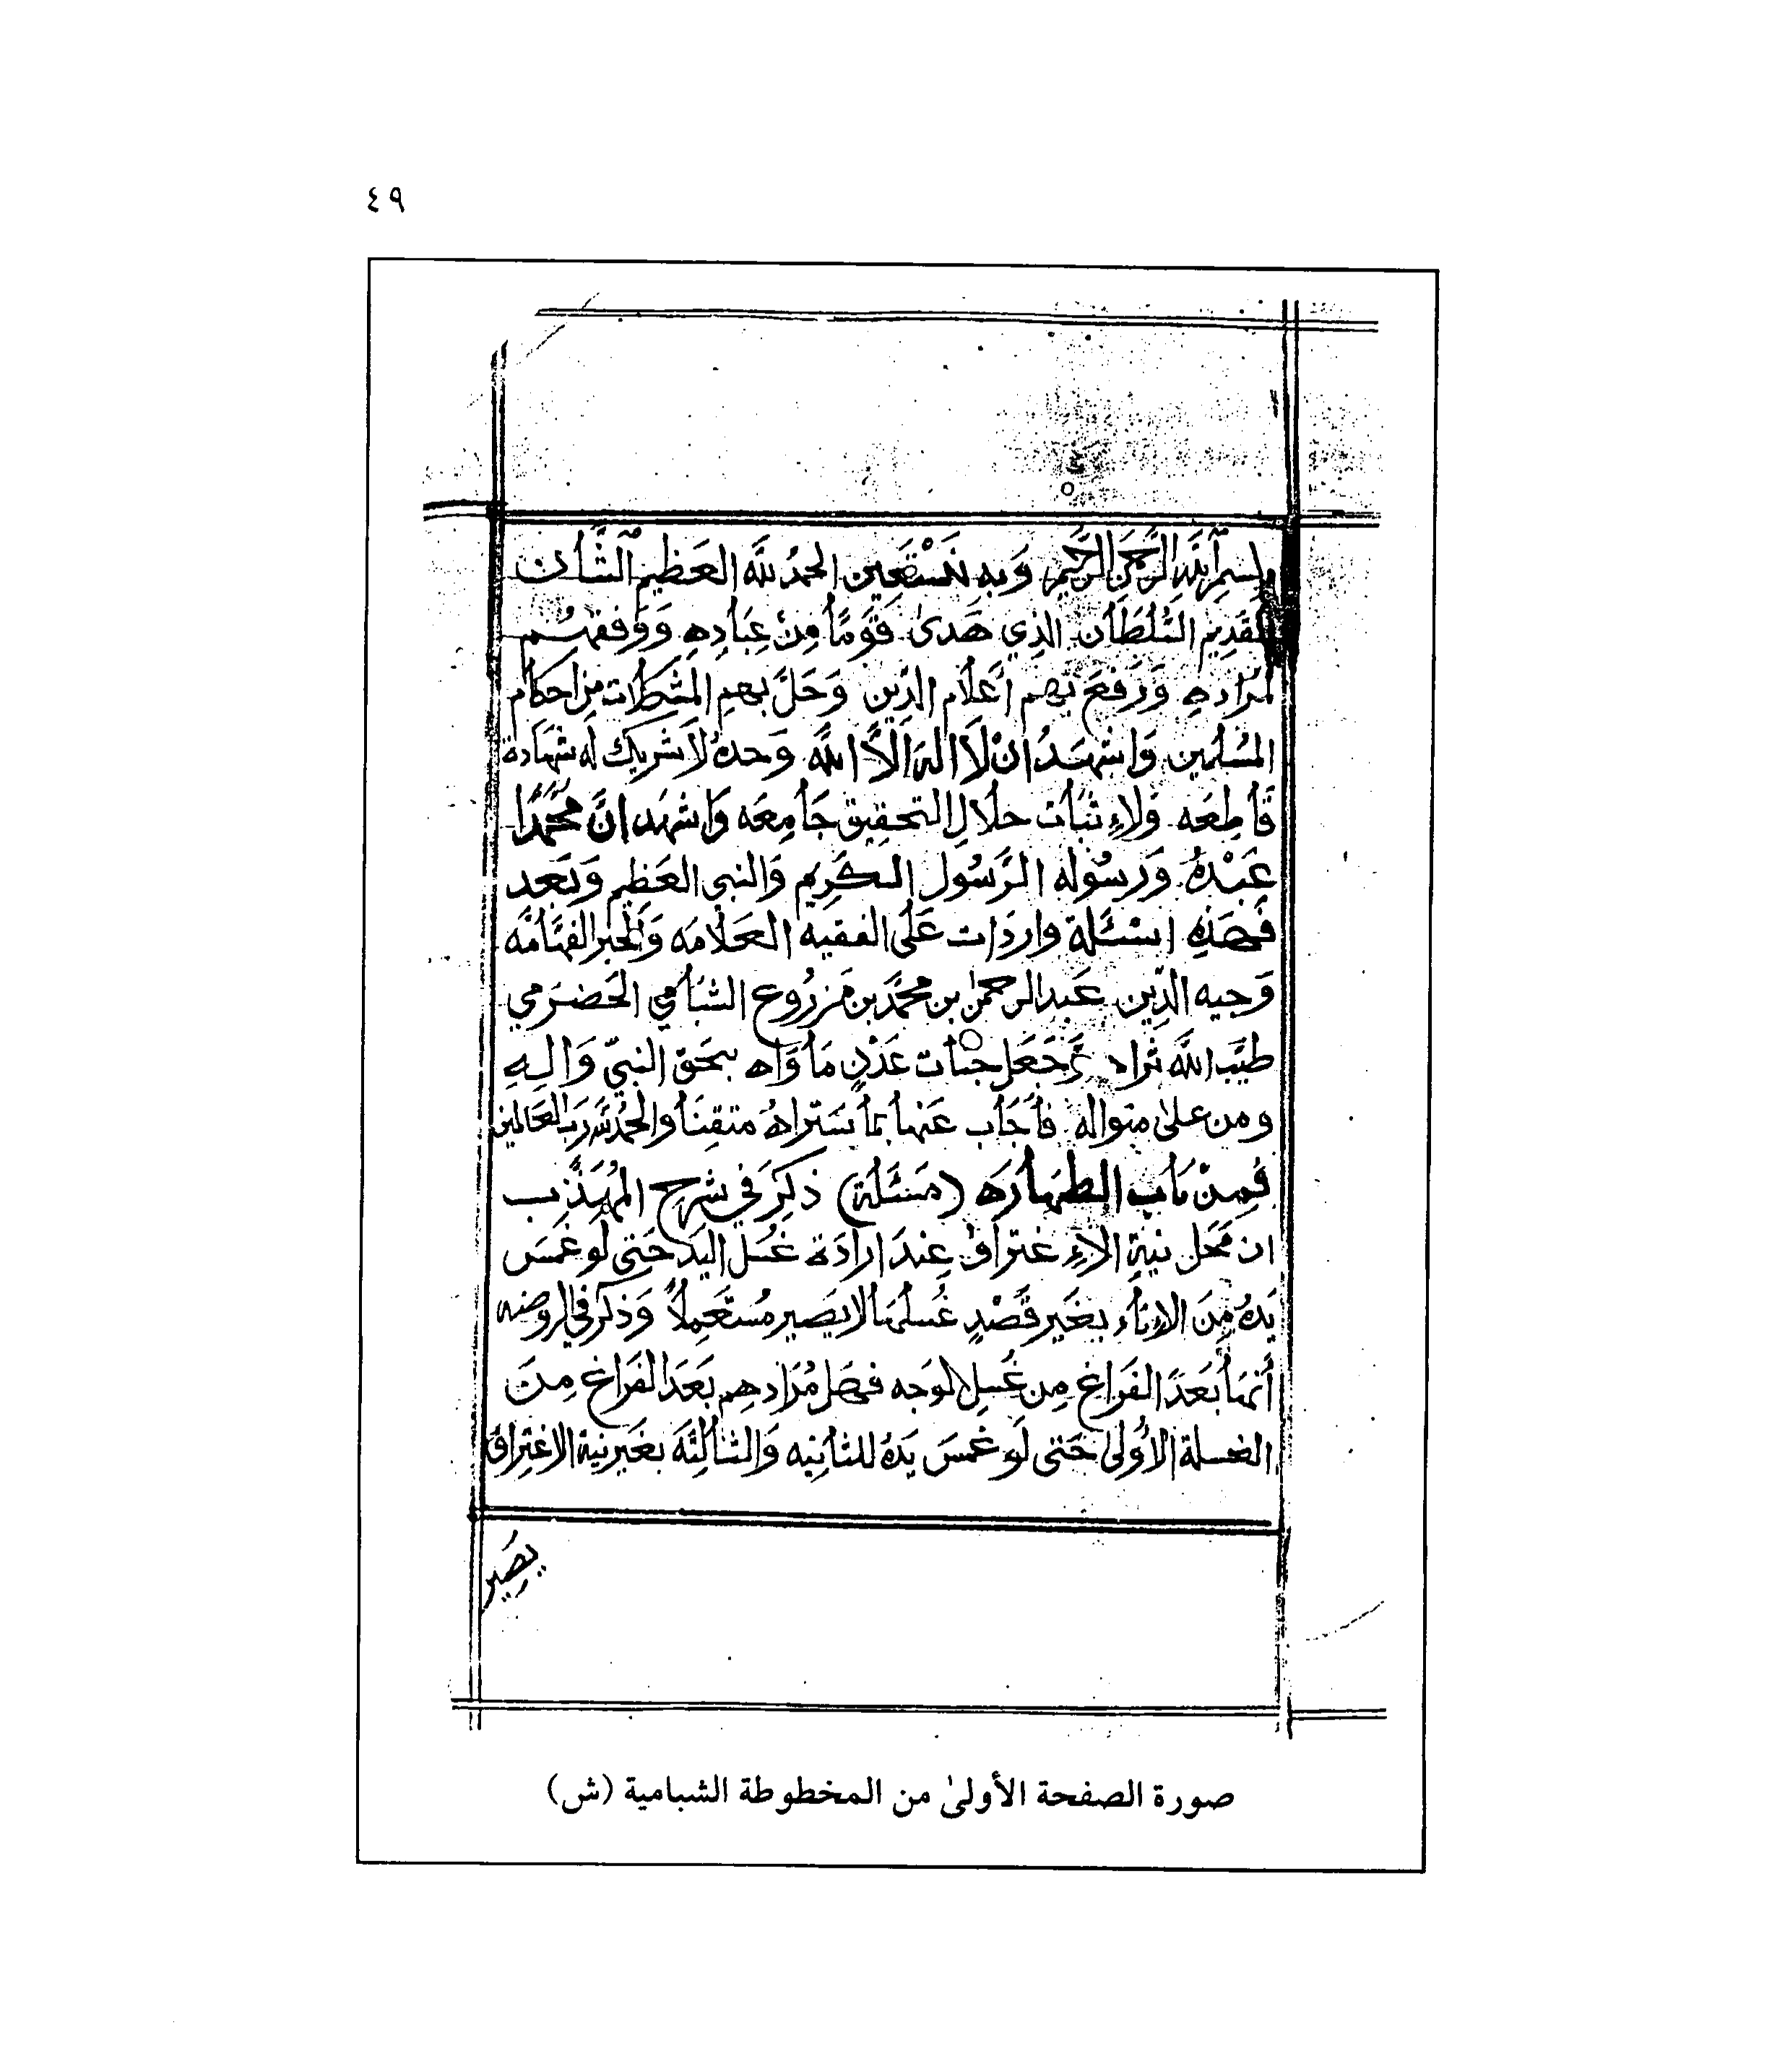 ٤٩
بسم الله الرحمن الرحيم وبه نستعين الحمد لله العظيم الشأن
القديم السلطان الذي هدى قومًا من عباده ووفقهم
لمراده ورفع بهم أعلام الدين وحل بهم المشكلات من احكام
المسلمين واشهد ان لا اله الا الله وحده لا شريك له شهادة
قاطعه ولاءثبات حلال التحقيق جامعه واشهد ان محمدًا
عبده ورسوله الرسول الكريم والنبي العظيم وبعد
فهذه اسئلة واردات على الفقيه العلامه والحبر الفهامه
وجيه الدين عبد الرحمن بن محمد بن مزروع الشبامي الحضرمي
طيب الله ثراه وجعل جنات عدن مأواه بحق النبي واله
ومن على منواله فأجاب عنها بما ستراه متقنا والحمد لله رب العالمين
فمن باب الطهاره (مسئلة) ذكر في شرح المهذب
ان محل نية الاءغتراف عند ارادة غسل اليد حتى لو غمس
يده من الإناء بغير قصد غسلها لا يصير مستعملاً وذكر في الروضه
أنها بعد الفراغ من غسل الوجه فهل مرادهم بعد الفراغ من
الغسلة الأولى حتى لو غمس يده للثانيه والثالثه بغير نية الاغتراف
يصير
صورة الصفحة الأولىٰ من المخطوطة الشبامية (ش)